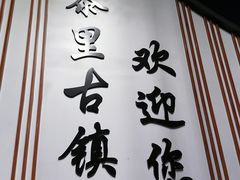 里古镇
欢迎你